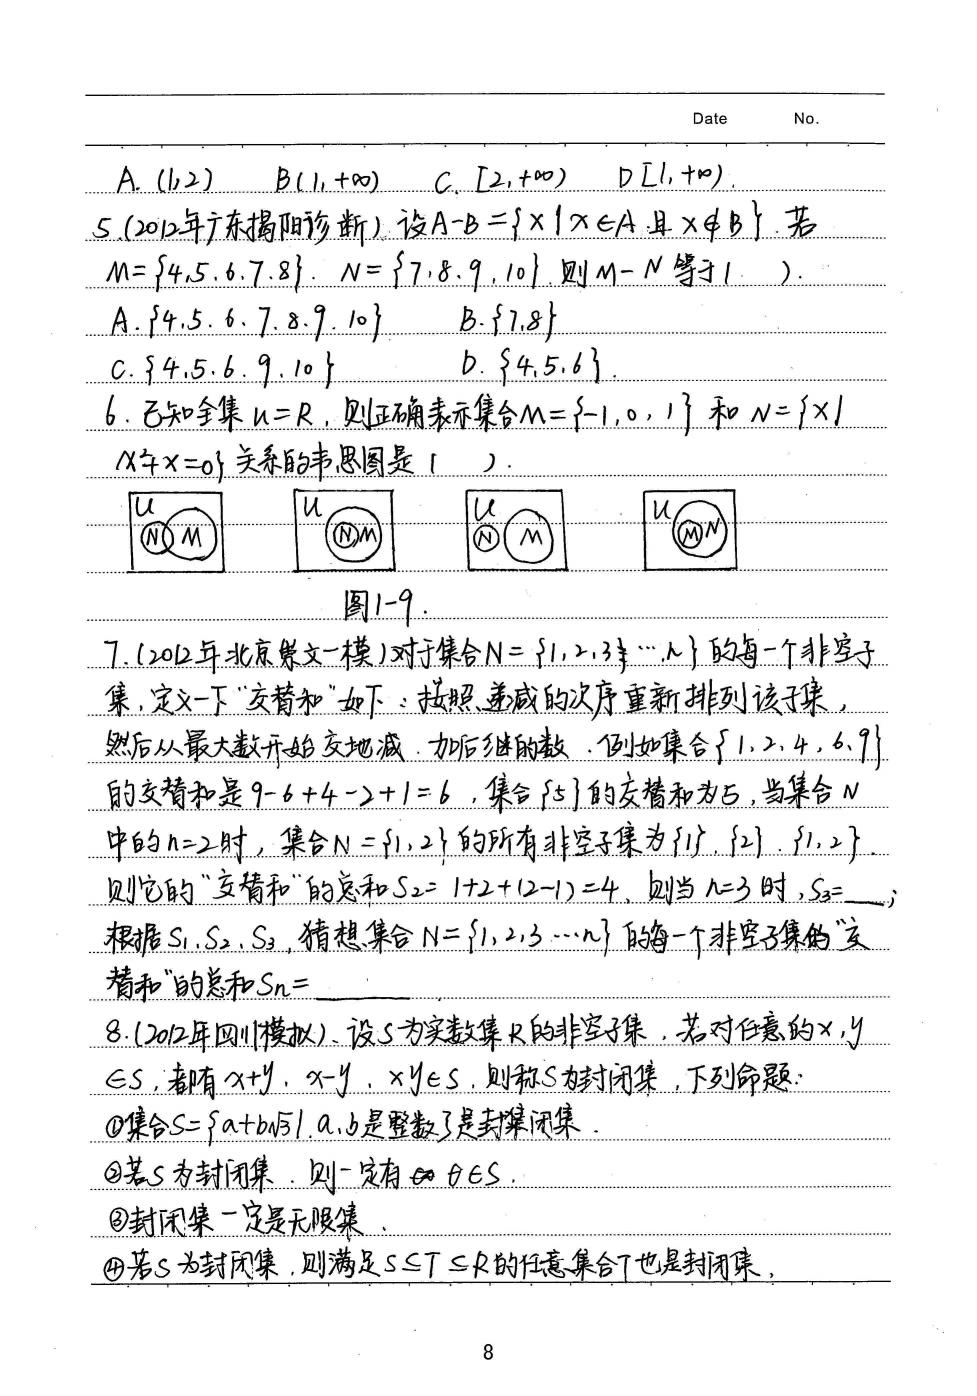 Date No.
A. (1,2) B(1,+∞) C. [2,+∞) D[1,+∞).
5.(2012年广东揭阳诊断) 设A-B={x|x∈A且x∉B}.若
M={4,5.6.7.8}. N={7.8.9.10}.则M-N等于( ).
A.{4.5.6.7.8.9.10} B.{7,8}
C.{4.5.6.9.10} D.{4,5,6}.
6.已知全集U=R,则正确表示集合M={-1,0,1}和N={x|
x²+x=0}关系的韦恩图是( ).
U N M U N M U N M U M N
图1-9.
7.(2012年北京崇文一模)对于集合N={1,2,3…n}的每一个非空子
集,定义一下"交替和"如下:按照递减的次序重新排列该子集,
然后从最大数开始交地减.加后继的数.例如集合{1.2.4,6.9}
的交替和是9-6+4-2+1=6,集合{5}的交替和为5,当集合N
中的n=2时,集合N={1,2}的所有非空子集为{1}.{2}.{1,2}.
则它的"交替和"的总和S₂=1+2+(2-1)=4,则当n=3时,S₃=___;
根据S₁.S₂.S₃,猜想集合N={1,2,3…n}的每一个非空子集的"交
替和"的总和Sn=______
8.(2012年四川模拟).设S为实数集R的非空子集,若对任意的x,y
∈S,都有x+y.x-y.xy∈S,则称S为封闭集,下列命题:
①集合S={a+b√3|.a,b是整数}是封闭集.
②若S为封闭集.则一定有0∈S.
③封闭集一定是无限集.
④若S为封闭集,则满足S⊆T⊆R的任意集合T也是封闭集,
8